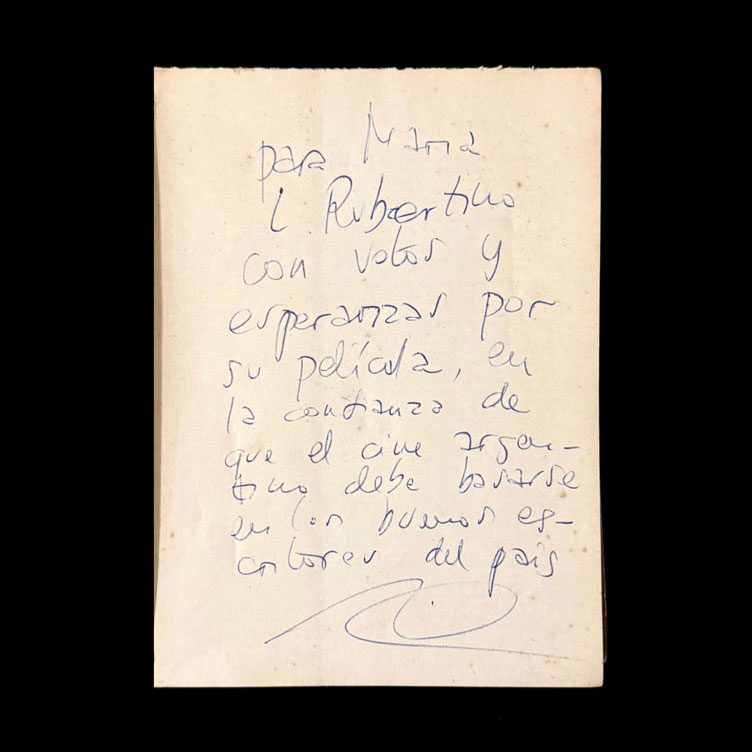 para María
L Rubertino
con votos y
esperanzas por
su película, en
la confianza de
que el cine argen-
tino debe basarse
en los buenos es-
critores del país